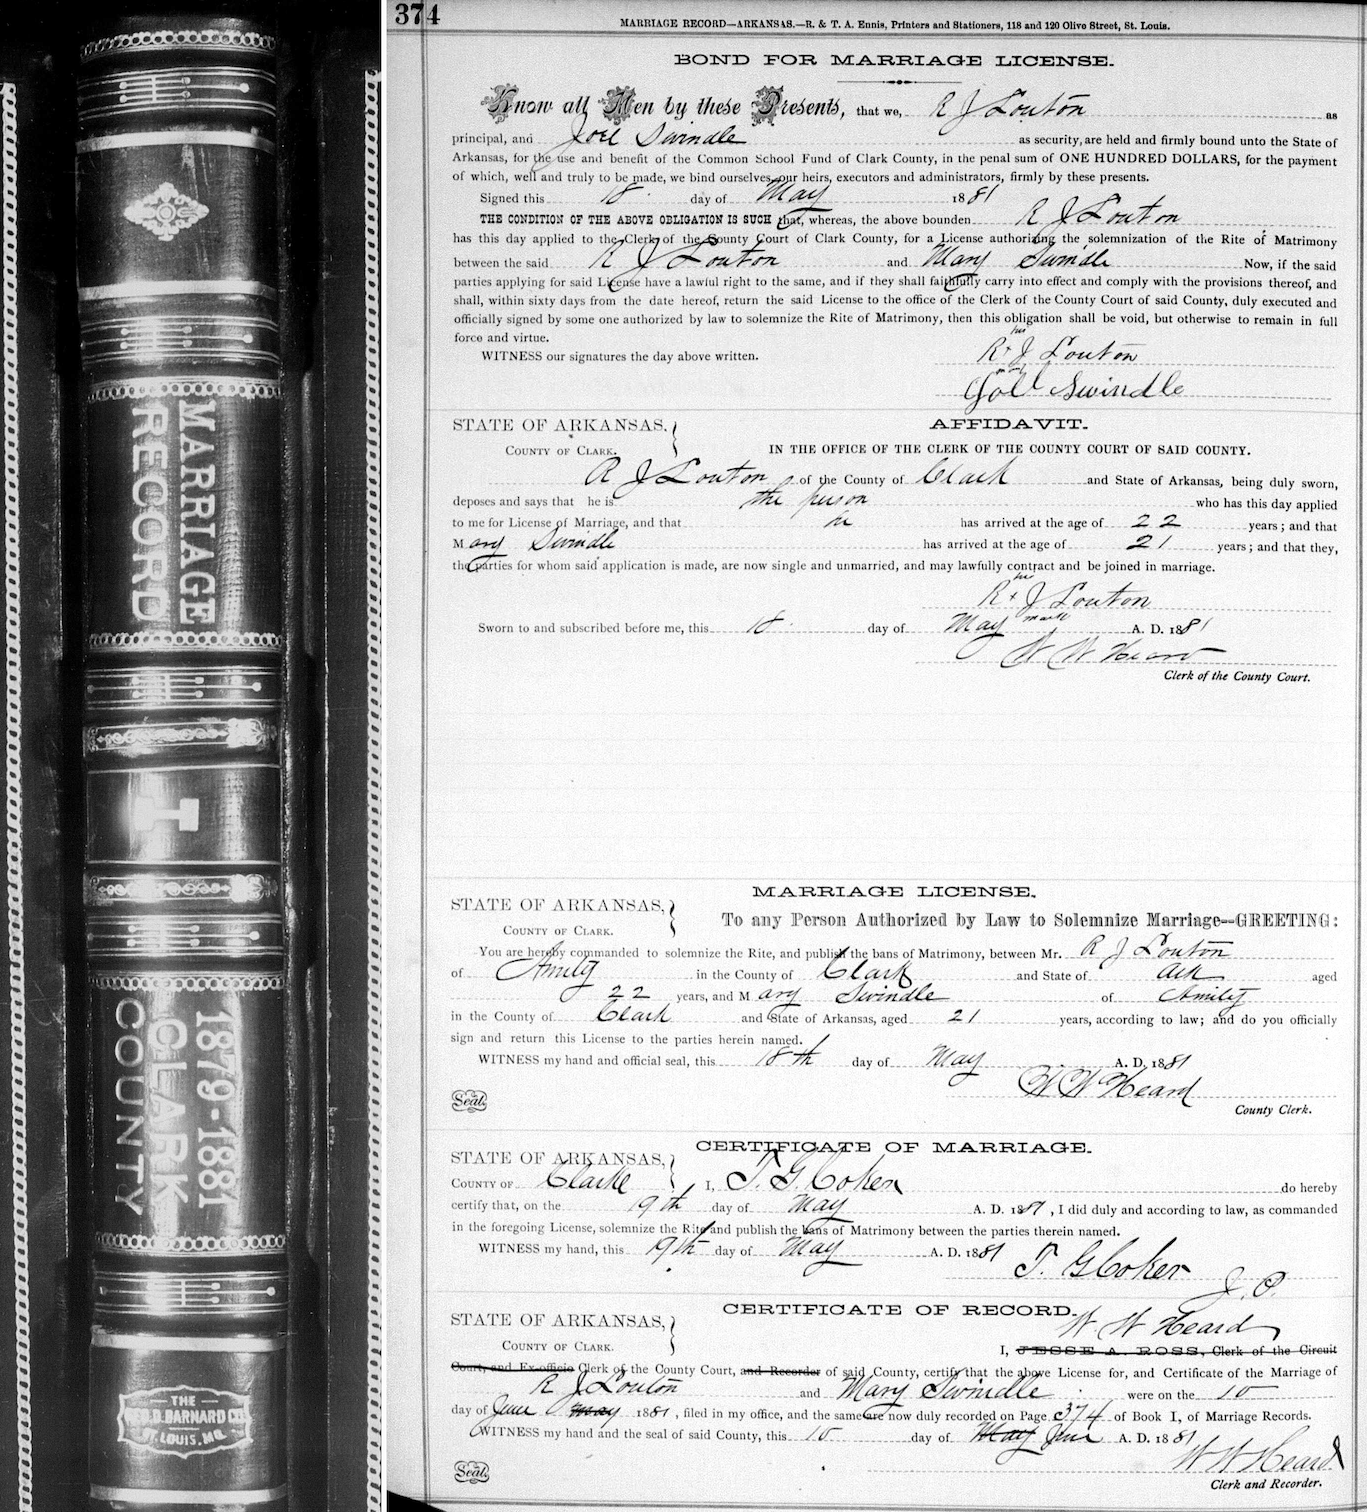 MARRIAGE
RECORD
I
1879-1881
CLARK
COUNTY
THE
GEO. D. BARNARD CO.
ST. LOUIS, MO.
374
MARRIAGE RECORD—ARKANSAS.—R. & T. A. Ennis, Printers and Stationers, 118 and 120 Olive Street, St. Louis.
BOND FOR MARRIAGE LICENSE.
Know all Men by these Presents, that we, R J Louton as
principal, and Joel Swindle as security, are held and firmly bound unto the State of
Arkansas, for the use and benefit of the Common School Fund of Clark County, in the penal sum of ONE HUNDRED DOLLARS, for the payment
of which, well and truly to be made, we bind ourselves, our heirs, executors and administrators, firmly by these presents.
Signed this 18 day of May 1881
THE CONDITION OF THE ABOVE OBLIGATION IS SUCH that, whereas, the above bounden R J Louton
has this day applied to the Clerk of the County Court of Clark County, for a License authorizing the solemnization of the Rite of Matrimony
between the said R J Louton and Mary Swindle Now, if the said
parties applying for said License have a lawful right to the same, and if they shall faithfully carry into effect and comply with the provisions thereof, and
shall, within sixty days from the date hereof, return the said License to the office of the Clerk of the County Court of said County, duly executed and
officially signed by some one authorized by law to solemnize the Rite of Matrimony, then this obligation shall be void, but otherwise to remain in full
force and virtue.
his
WITNESS our signatures the day above written. R + J Louton
Joel Swindle
STATE OF ARKANSAS, AFFIDAVIT.
COUNTY OF CLARK. IN THE OFFICE OF THE CLERK OF THE COUNTY COURT OF SAID COUNTY.
R J Louton of the County of Clark and State of Arkansas, being duly sworn,
deposes and says that he is the person who has this day applied
to me for License of Marriage, and that he has arrived at the age of 22 years; and that
Mary Swindle has arrived at the age of 21 years; and that they,
the parties for whom said application is made, are now single and unmarried, and may lawfully contract and be joined in marriage.
his
R + J Louton
mark
Sworn to and subscribed before me, this 18 day of May A. D. 1881
W W Heard
Clerk of the County Court.
MARRIAGE LICENSE.
STATE OF ARKANSAS,
COUNTY OF CLARK. To any Person Authorized by Law to Solemnize Marriage—GREETING:
You are hereby commanded to solemnize the Rite, and publish the bans of Matrimony, between Mr. R J Louton
of Amity in the County of Clark and State of Ark aged
22 years, and Mary Swindle of Amity
in the County of Clark and State of Arkansas, aged 21 years, according to law; and do you officially
sign and return this License to the parties herein named.
WITNESS my hand and official seal, this 18th day of May A. D. 1881
W W Heard
Seal. County Clerk.
CERTIFICATE OF MARRIAGE.
STATE OF ARKANSAS,
COUNTY OF Clarke I, T. G. Coker do hereby
certify that, on the 19th day of May A. D. 1881, I did duly and according to law, as commanded
in the foregoing License, solemnize the Rite and publish the bans of Matrimony between the parties therein named.
WITNESS my hand, this 19th day of May A. D. 1881 T. G Coker
J. P.
CERTIFICATE OF RECORD.
STATE OF ARKANSAS, W W Heard
COUNTY OF CLARK. I, JESSE A. ROSS, Clerk of the Circuit
Court, and Ex-officio Clerk of the County Court, and Recorder of said County, certify that the above License for, and Certificate of Marriage of
R J Louton and Mary Swindle were on the 10
day of June May 1881, filed in my office, and the same are now duly recorded on Page 374 of Book I, of Marriage Records.
WITNESS my hand and the seal of said County, this 10 day of May June A. D. 1881
W W Heard
Seal. Clerk and Recorder.